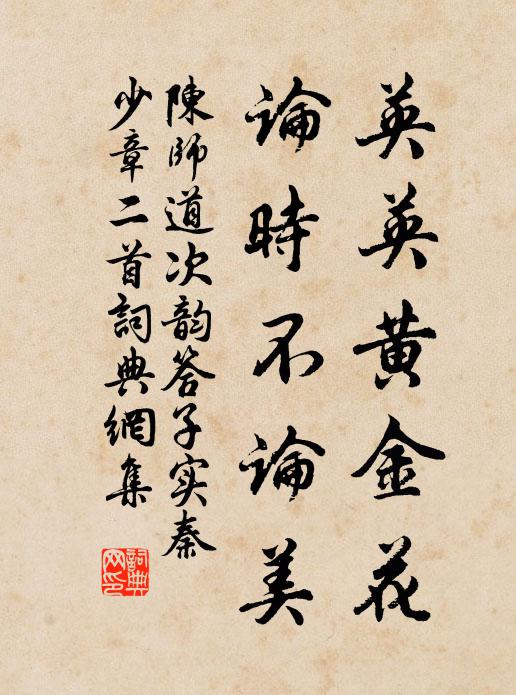 英英黄金花
論時不論美
陳師道次韵答子实秦
少章二首詞典網集
詞典网印